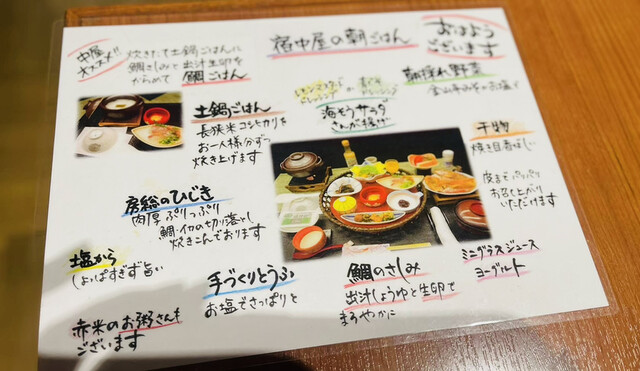 おはよう
ございます
宿中屋の朝ごはん
中屋
オススメ!!
炊きたて土鍋ごはんに
鯛さしみと出汁生卵を
からめて 鯛ごはん
朝採れ野菜
金山寺みそorお塩で
レモンマスタード
ドレッシング
or
ドレッシング
海そうサラダ
さんが揚げ
土鍋ごはん
長狭米コシヒカリを
お一人様分ずつ
炊き上げます
干物
焼き目香ばしい
皮までパリパリ
お召し上がり
いただけます
房総のひじき
肉厚ぷりっぷり
鯛・イカの切り落とし
炊きこんでおります
塩から
しょっぱすぎず旨い
手づくりとうふ
お塩でさっぱりと
鯛のさしみ
出汁しょうゆと生卵で
まろやかに
ミニグラスジュース
ヨーグルト
赤米のお粥さんも
ございます